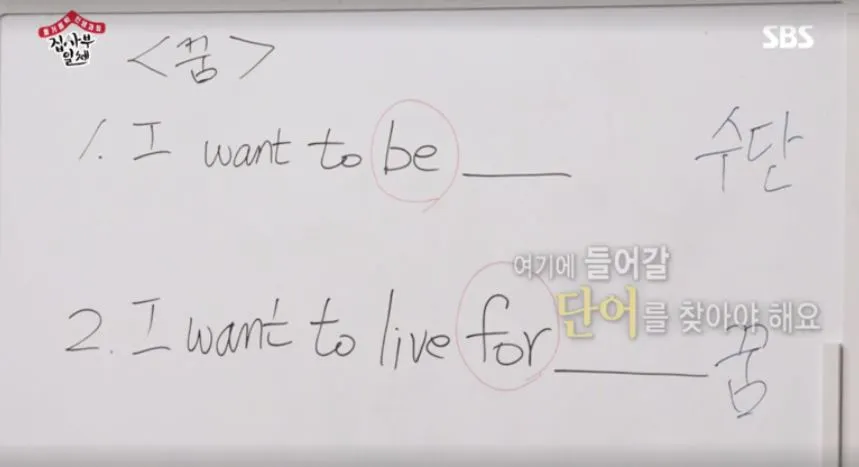 집사부
일체
SBS
<꿈>
1. I want to be ____ 수단
여기에 들어갈
단어를 찾아야 해요
2. I want to live for ____ 꿈